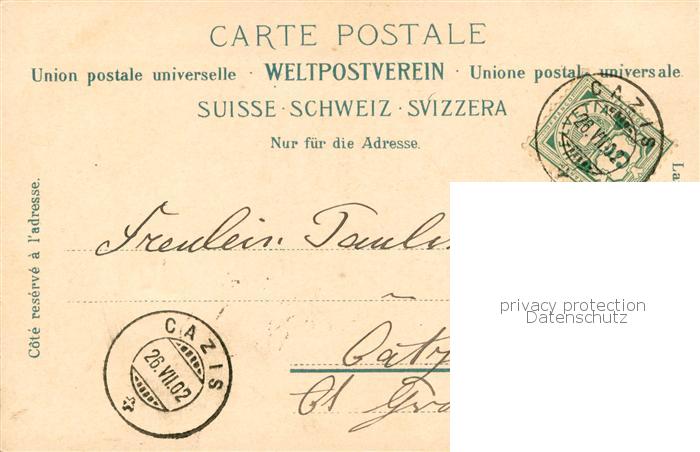 CARTE POSTALE
Union postale universelle · WELTPOSTVEREIN · Unione postale universale
SUISSE · SCHWEIZ · SVIZZERA
Nur für die Adresse.
Côté reservé à l'adresse.
La
CAZIS
26.VII.02
Freulein Paul
privacy protection
Datenschutz
Catz
Ct Gra
CAZIS
26.VII.02